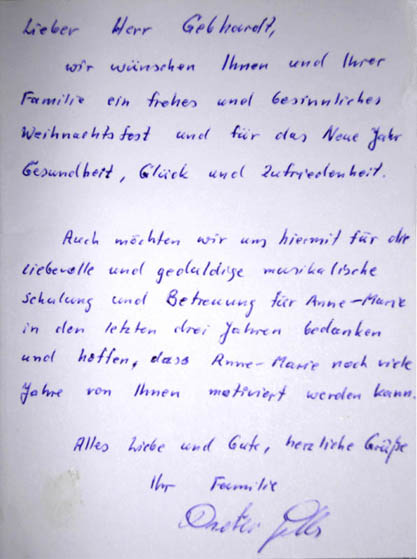 Lieber Herr Gebhardt,
wir wünschen Ihnen und Ihrer
Familie ein frohes und besinnliches
Weihnachtsfest und für das Neue Jahr
Gesundheit, Glück und Zufriedenheit.
Auch möchten wir uns hiermit für die
liebevolle und geduldige musikalische
Schulung und Betreuung für Anne-Marie
in den letzten drei Jahren bedanken
und hoffen, dass Anne-Marie noch viele
Jahre von Ihnen motiviert werden kann.
Alles Liebe und Gute, herzliche Grüße
Ihr Familie